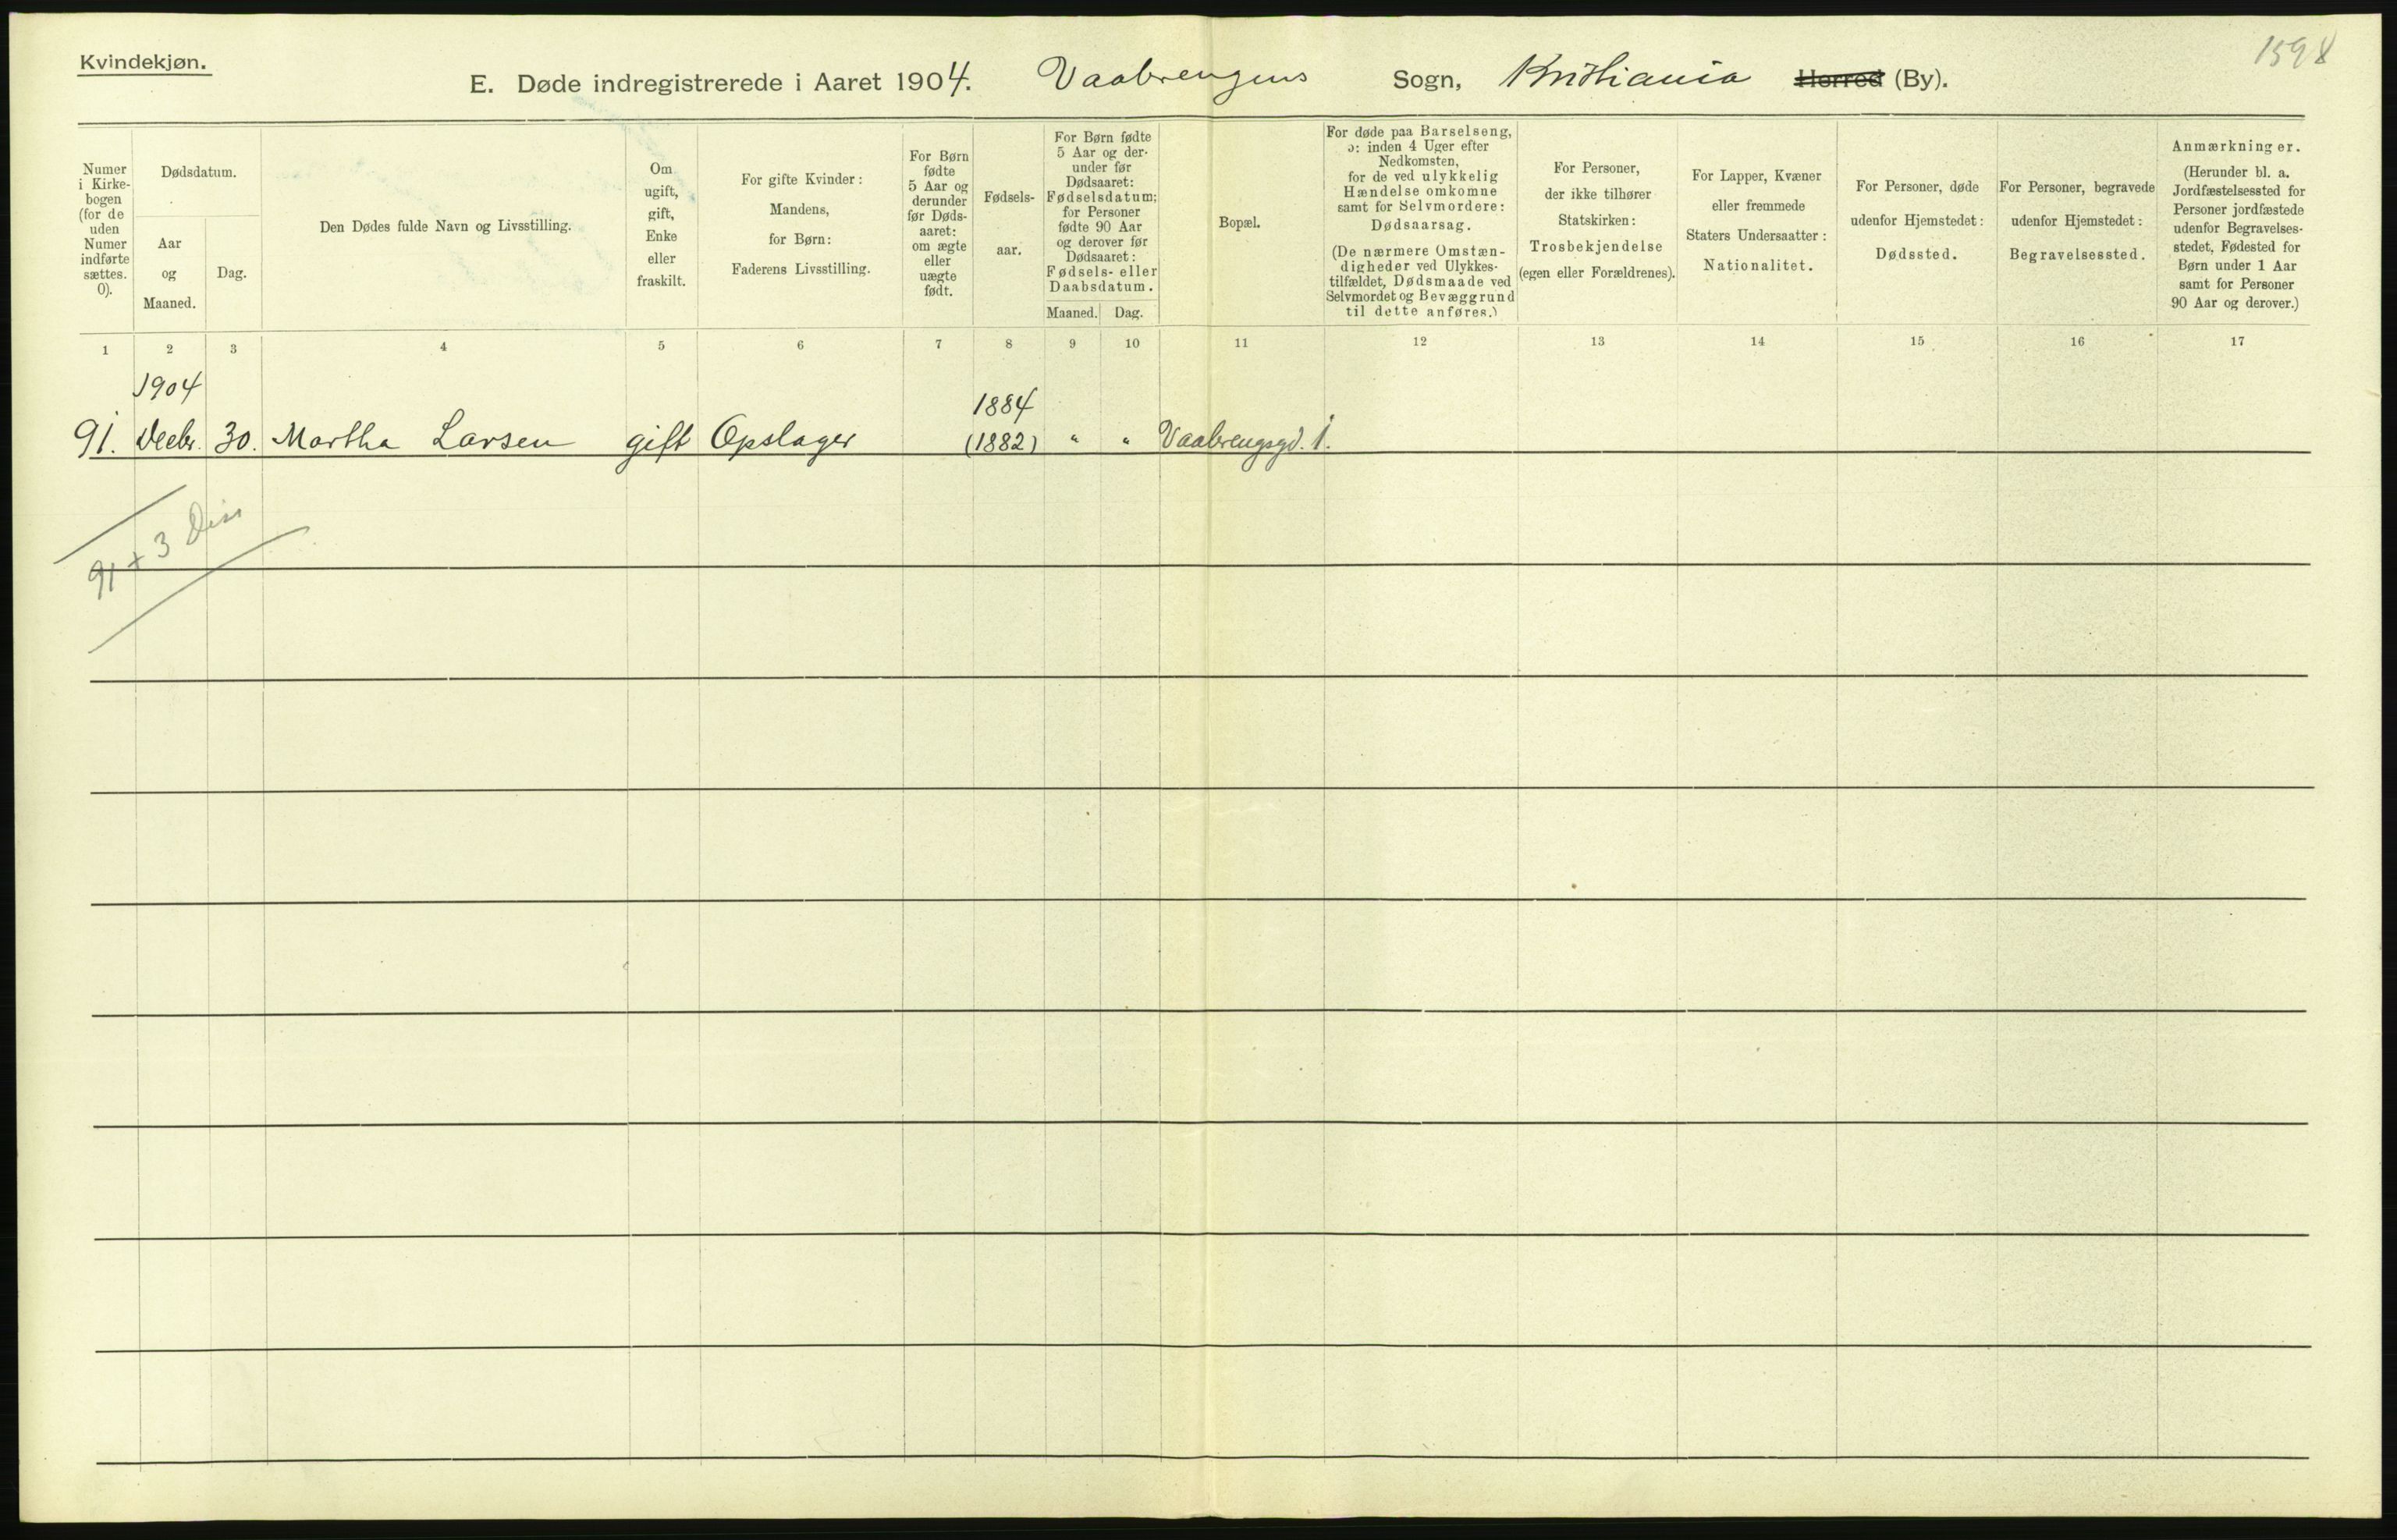 Kvindekjøn.
1598
E. Døde indregistrerede i Aaret 1904. Vaalerengens Sogn, Kristiania Herred (By).
Numer
i Kirke-
bogen
(for de
uden
Numer
indførte
sættes.
0).
Dødsdatum.
Aar
og
Maaned.
Dag.
Den Dødes fulde Navn og Livsstilling.
Om
ugift,
gift,
Enke
eller
fraskilt.
For gifte Kvinder:
Mandens,
for Børn:
Faderens Livsstilling.
For Børn
fødte
5 Aar og
derunder
før Døds-
aaret:
om ægte
eller
uægte
født.
Fødsels-
aar.
For Børn fødte
5 Aar og der-
under før
Dødsaaret:
Fødselsdatum;
for Personer
fødte 90 Aar
og derover før
Dødsaaret:
Fødsels- eller
Daabsdatum.
Maaned. Dag.
Bopæl.
For døde paa Barselseng,
ɔ: inden 4 Uger efter
Nedkomsten,
for de ved ulykkelig
Hændelse omkomne
samt for Selvmordere:
Dødsaarsag.
(De nærmere Omstæn-
digheder ved Ulykkes-
tilfældet, Dødsmaade ved
Selvmordet og Bevæggrund
til dette anføres.)
For Personer,
der ikke tilhører
Statskirken:
Trosbekjendelse
(egen eller Forældrenes).
For Lapper, Kvæner
eller fremmede
Staters Undersaatter:
Nationalitet.
For Personer, døde
udenfor Hjemstedet:
Dødssted.
For Personer, begravede
udenfor Hjemstedet:
Begravelsessted.
Anmærkninger.
(Herunder bl. a.
Jordfæstelsessted for
Personer jordfæstede
udenfor Begravelses-
stedet, Fødested for
Børn under 1 Aar
samt for Personer
90 Aar og derover.)
1 2 3 4 5 6 7 8 9 10 11 12 13 14 15 16 17
1904
1884
91. Decbr. 30. Martha Larsen gift Opslager (1882) " " Vaalerengsgd. 1.
91 + 3 Diss